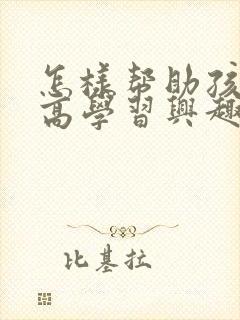 怎樣幫助孩
高學習興趣
比基拉